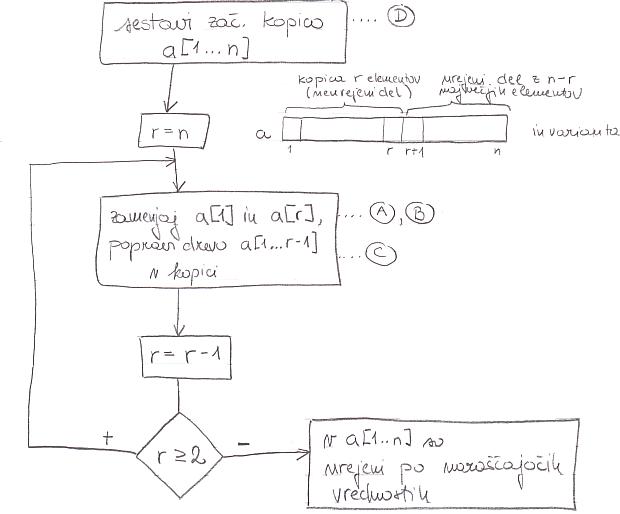 sestavi zač. kopico
a[1...n]
.... D
r=n
kopica r elementov
(neurejeni del)
urejeni del z n-r
največjih elementov
a
1
r
r+1
n
invarianta
zamenjaj a[1] in a[r],
popravi drevo a[1...r-1]
v kopici
.... A, B
.... C
r = r-1
r ≥ 2
+
-
v a[1..n] so
urejeni po naraščajočih
vrednostih